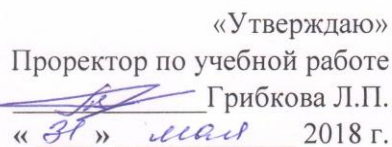 «Утверждаю»
Проректор по учебной работе
Грибкова Л.П.
« 31 » мая 2018 г.